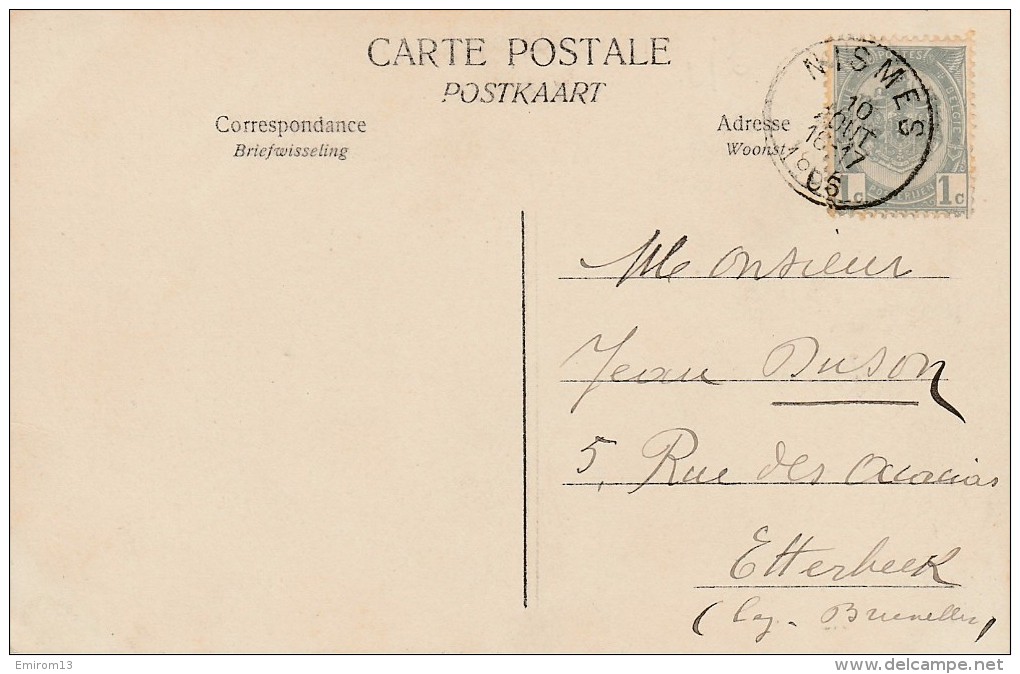 CARTE POSTALE
POSTKAART
Correspondance
Briefwisseling
Adresse
Woonst
NISMES
10
AOUT
16-17
BELGIE
POSTERIJEN
1c 1c
Monsieur
Jean Duson
5, Rue des Acacias
Etterbeek
(Lez-Bruxelles)
Emirom13
www.delcampe.net